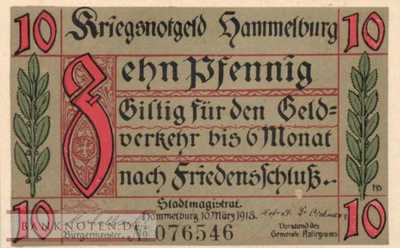 10 Kriegsnotgeld Hammelburg 10
Zehn Pfennig
Giltig für den Geld-
verkehr bis 6 Monat
nach Friedensschluß.
Stadtmagistrat.
Hammelburg 10. März 1918.
BANKNOTEN.DE
Bürgermeister
Vorstand des
Gemeinde Kollegiums
10 076546 10